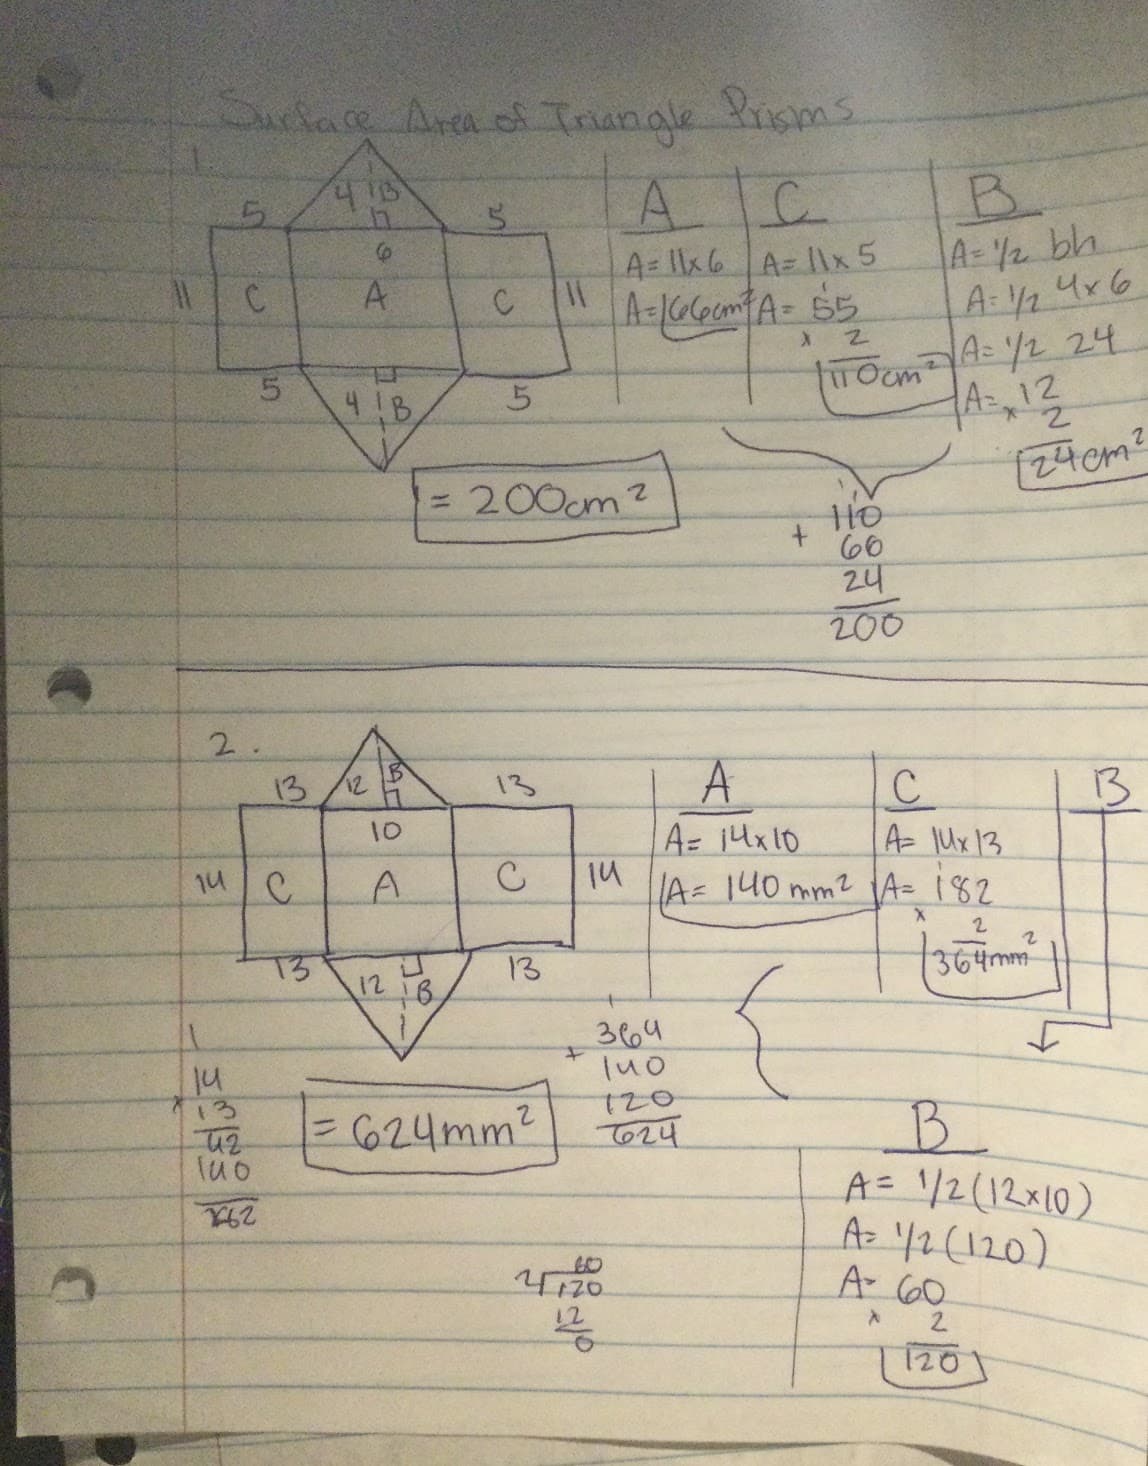 Surface Area of Triangle Prisms
1.
4 B
5 5
6
11 C A C 11
5 5
4 B
A
A= 11x6
A= 66cm²
C
A= 11x5
A= 55
x 2
110cm²
B
A= 1/2 bh
A= 1/2 4x6
A= 1/2 24
A= 12
x 2
24cm²
= 200cm²
110
+ 66
24
200
2.
13 12 B 13
10
14 C A C 14
13 12 B 13
A
A= 14x10
A= 140mm²
C
A= 14x13
A= 182
x 2
364mm²
B
1
364
+ 140
120
624
1
14
x 13
42
140
= 624mm²
B
A= 1/2(12x10)
A= 1/2(120)
A= 60
x 2
120
60
2 120
12
0